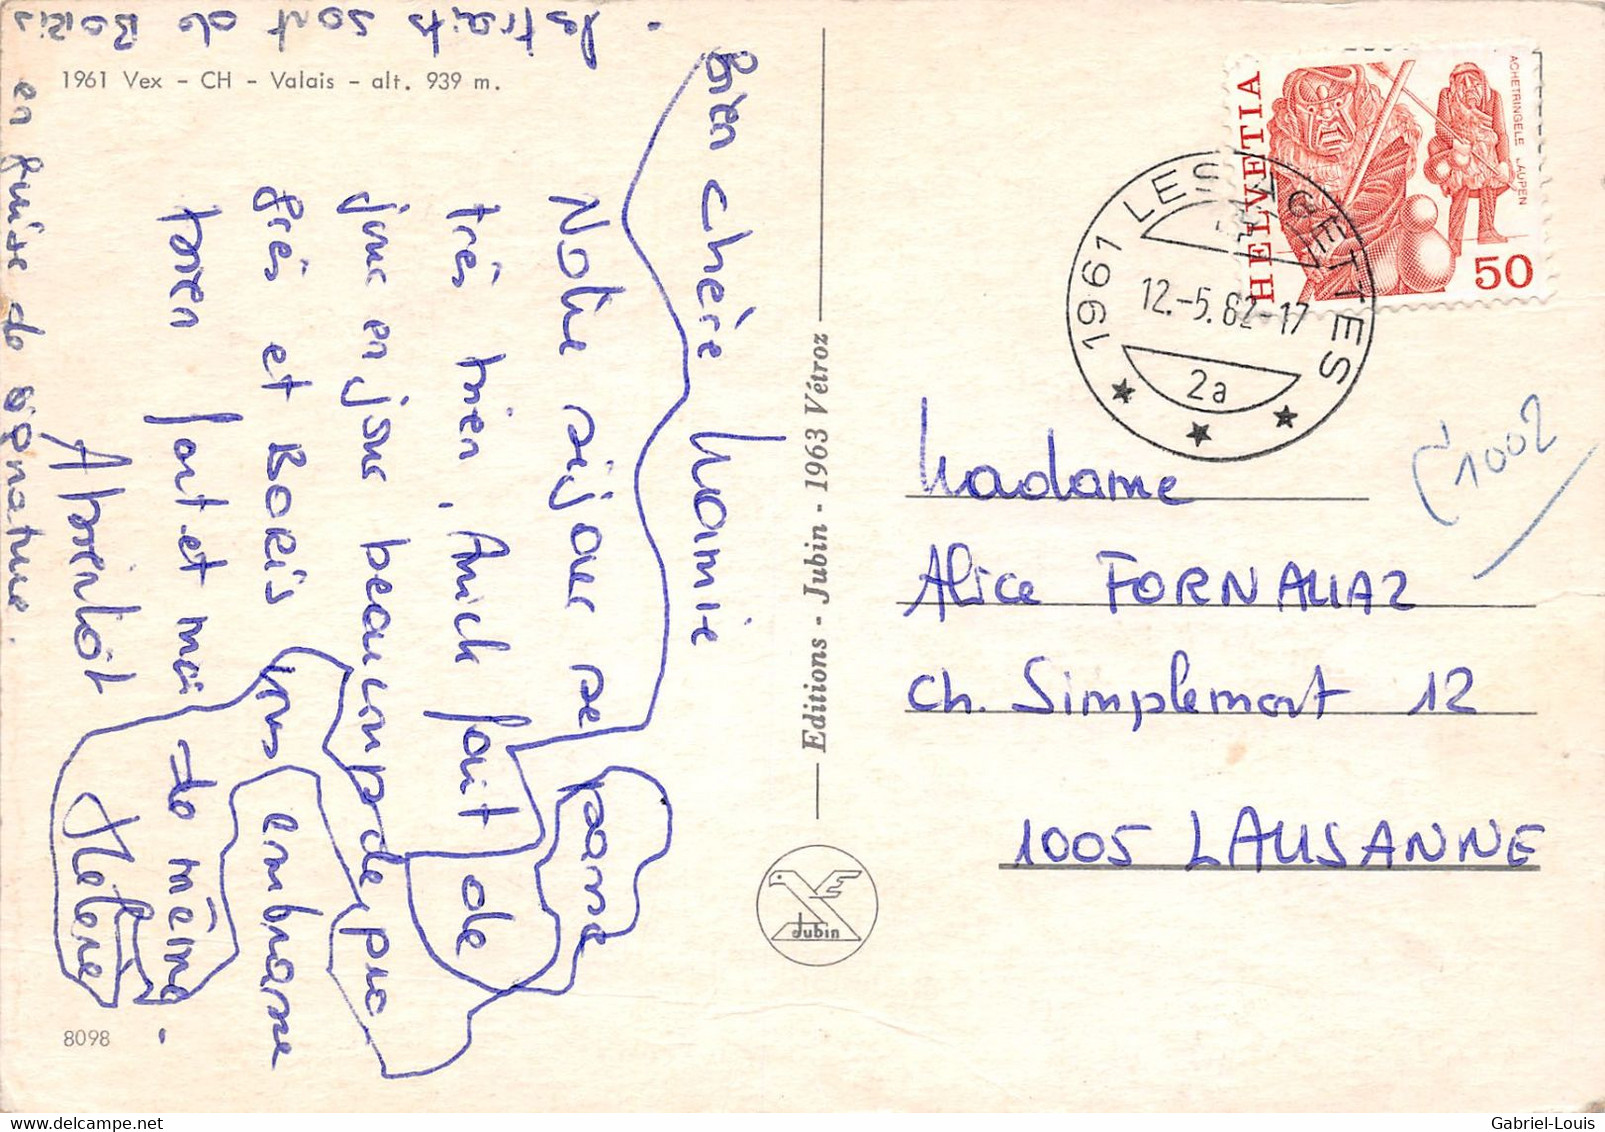 1961 Vex - CH - Valais - alt. 939 m.
Bien chère Mamie
Notre séjour se passe
très bien. Anick fait de
jour en jour beaucoup de pro
grès et BORIS vous embrasse
bien fort et moi de même.
A bientôt Hélène
. les traits sont de Boris
en guise de signature.
8098
Editions - Jubin - 1963 Vétroz
Jubin
HELVETIA
ACHETRINGELE LAUPEN
50
1961 LES AGETTES
12.-5.82-17
2a
1002
Madame
Alice FORNALLAZ
ch. Simplemont 12
1005 LAUSANNE
Gabriel-Louis